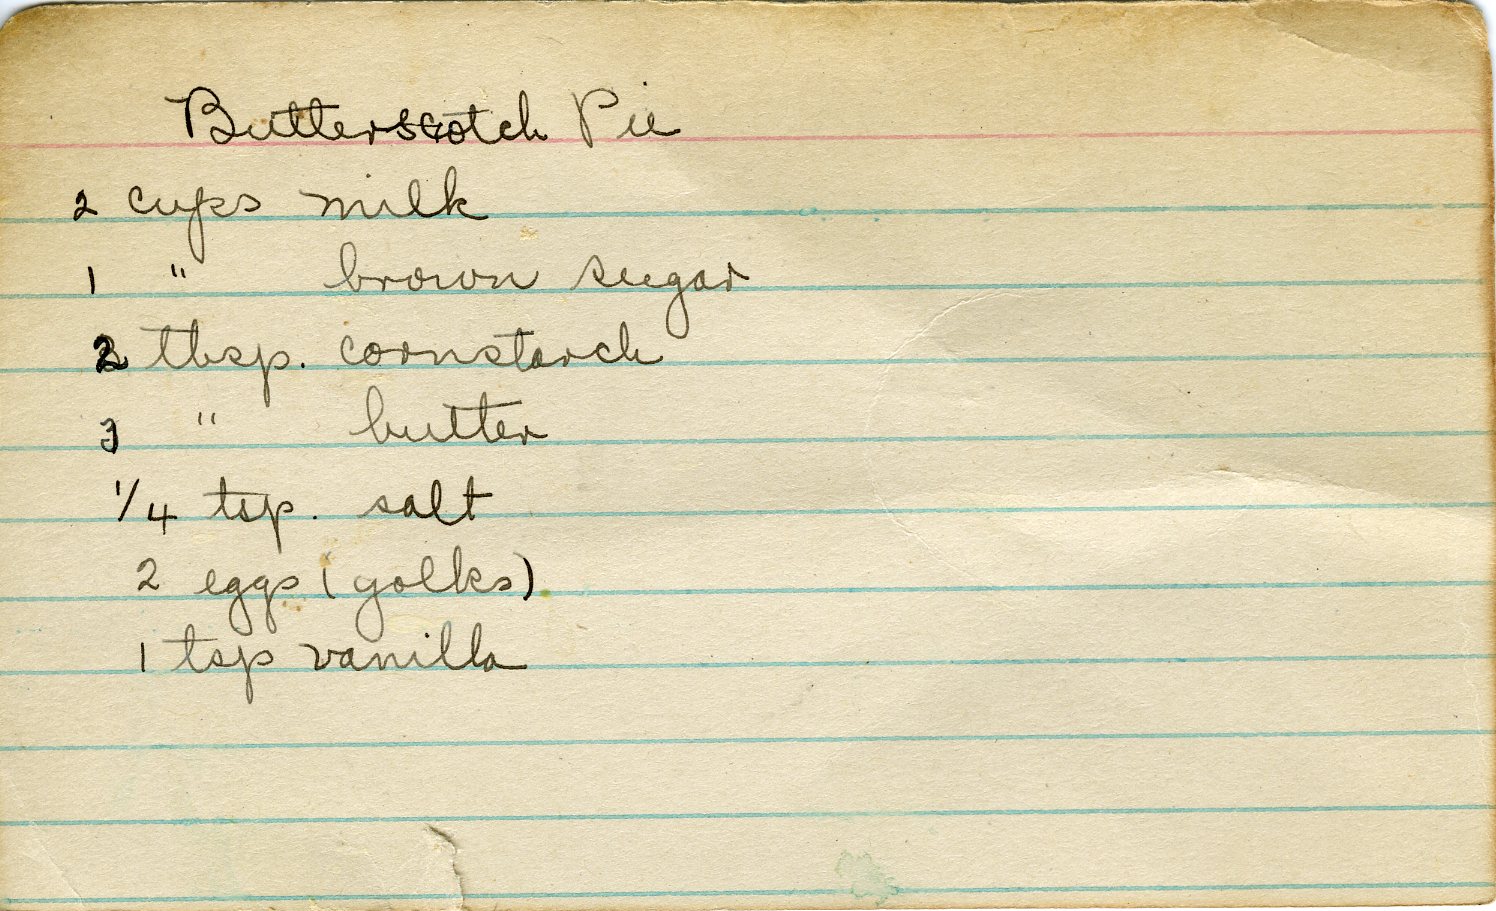 Butterscotch Pie
2 cups milk
1 " brown sugar
2 tbsp. cornstarch
3 " butter
1/4 tsp. salt
2 eggs (yolks)
1 tsp vanilla